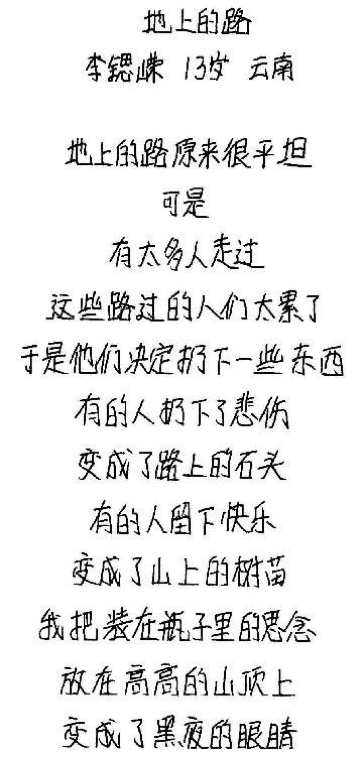 地上的路
李锶嵘 13岁 云南
地上的路原来很平坦
可是
有太多人走过
这些路过的人们太累了
于是他们决定扔下一些东西
有的人扔下了悲伤
变成了路上的石头
有的人留下快乐
变成了山上的树苗
我把装在瓶子里的思念
放在高高的山顶上
变成了黑夜的眼睛